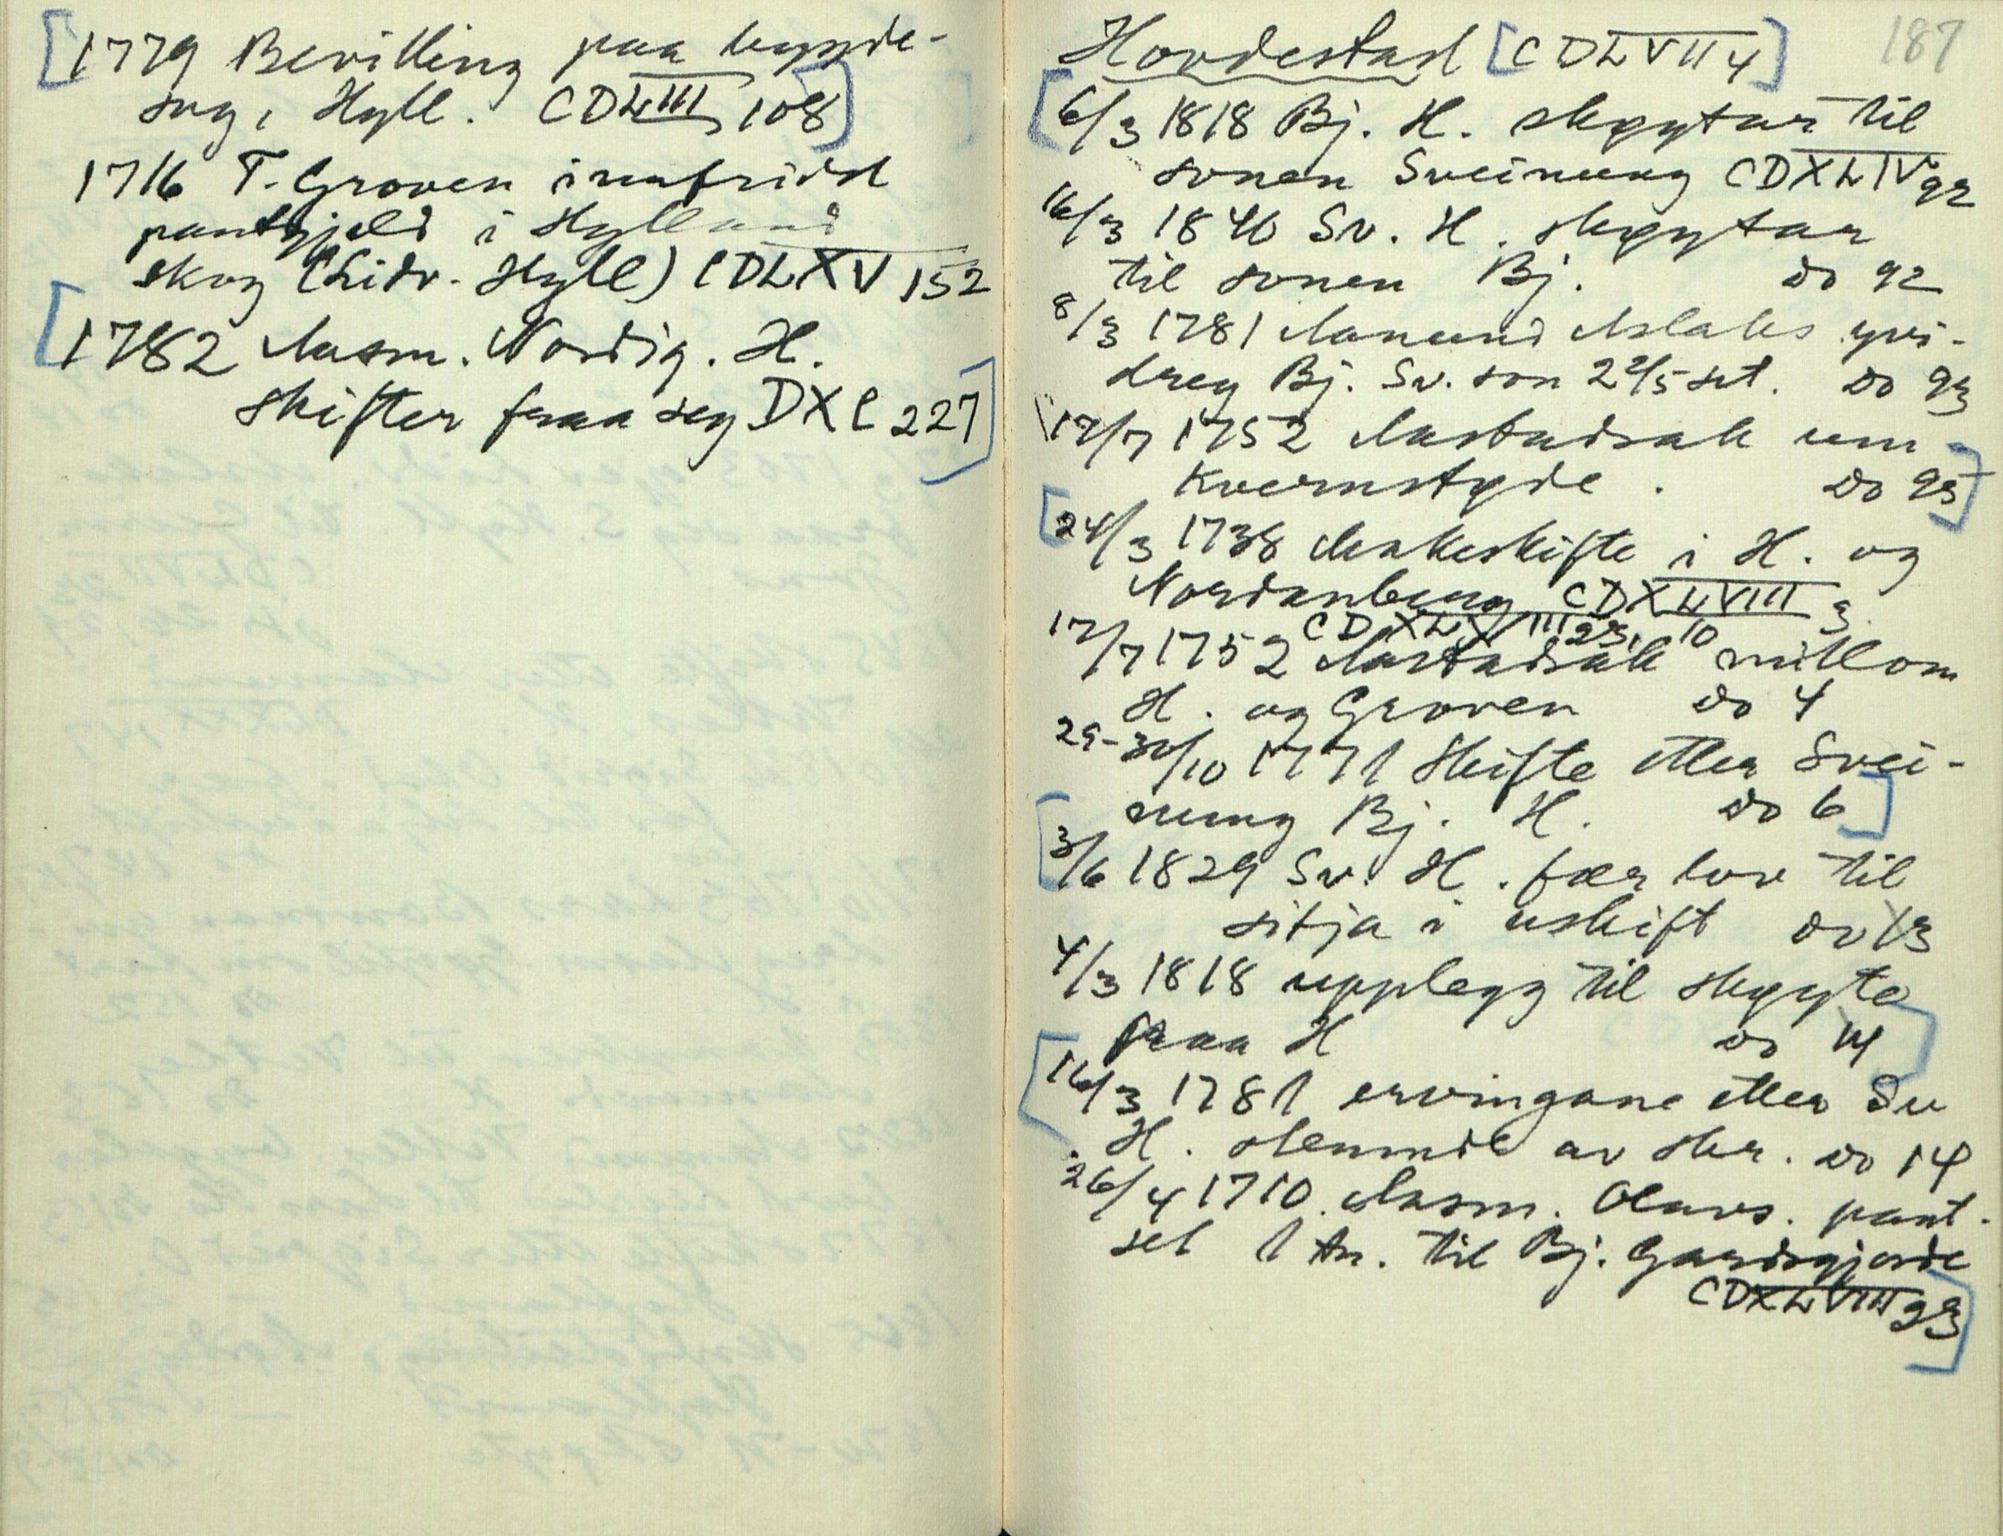 [1779 Bevilling paa bygde-
sag, Hyll. CDLIII 108]
1716 T. Groven innfridd
pantgjeld i Hylland
skog (Lidv. Hyll) CDLXV 152
[1782 Aasm. Nordig. H.
skifter fraa seg DXC 227]
187
Hovdestad [CDLVII 4]
[6/3 1818 Bj. H. skøytar til
sonen Sveinung CDXLIV 92
16/3 1840 Sv. H. skøytar
til sonen Bj. do 92
8/3 1781 Aamund Aslaks yvi-
dreg Bj. Sv. son 2 2/5 set. do 93
17/7 1752 Aastadsak um
Kvernstøde. do 95]
[24/3 1738 Makeskifte i H. og
Nordanbeng CDXLVIII 3
CDXLVIII 23, 10
17/7 1752 Aastadsak millom
H. og Groven do 4
29-30/10 1771 Skifte etter Svei-
nung Bj. H. do 6]
[3/6 1829 Sv. H. fær lov til
sitja i uskift do 13
4/3 1818 upplegg til skøyte
fraa H do 14]
[16/3 1781 ervingane etter Sv
H. stemnde av skr. do 14
26/4 1710. Aasm. Olavs. pant-
set 1 tn. til Bj. Gardsgjorde
CDXLVIII 23]